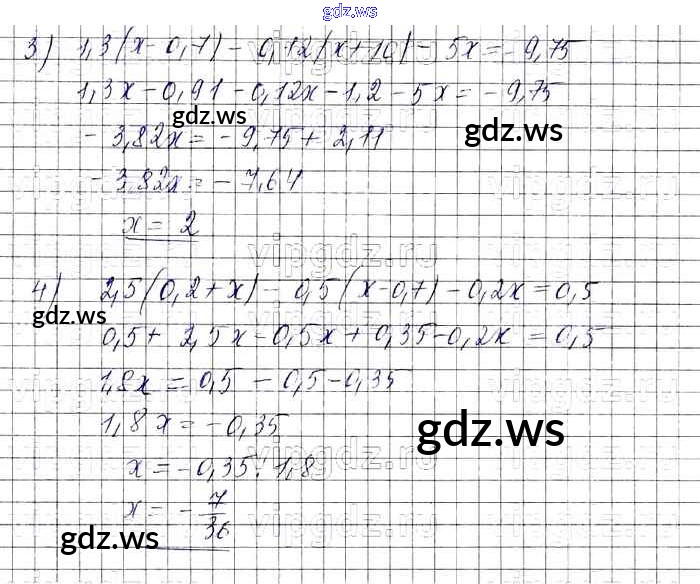 gdz.ws
3) 1,3(x-0,7) - 0,12(x+10) - 5x = -9,75
1,3x - 0,91 - 0,12x - 1,2 - 5x = -9,75
gdz.ws gdz.ws
-3,82x = -9,75 + 2,11
-3,82x = -7,64
x = 2
vipgdz.ws
4) 2,5(0,2+x) - 0,5(x-0,7) - 0,2x = 0,5
gdz.ws
0,5 + 2,5x - 0,5x + 0,35 - 0,2x = 0,5
1,8x = 0,5 - 0,5 - 0,35
1,8x = -0,35
gdz.ws
x = -0,35 : 1,8
x = -7/36
gdz.ws